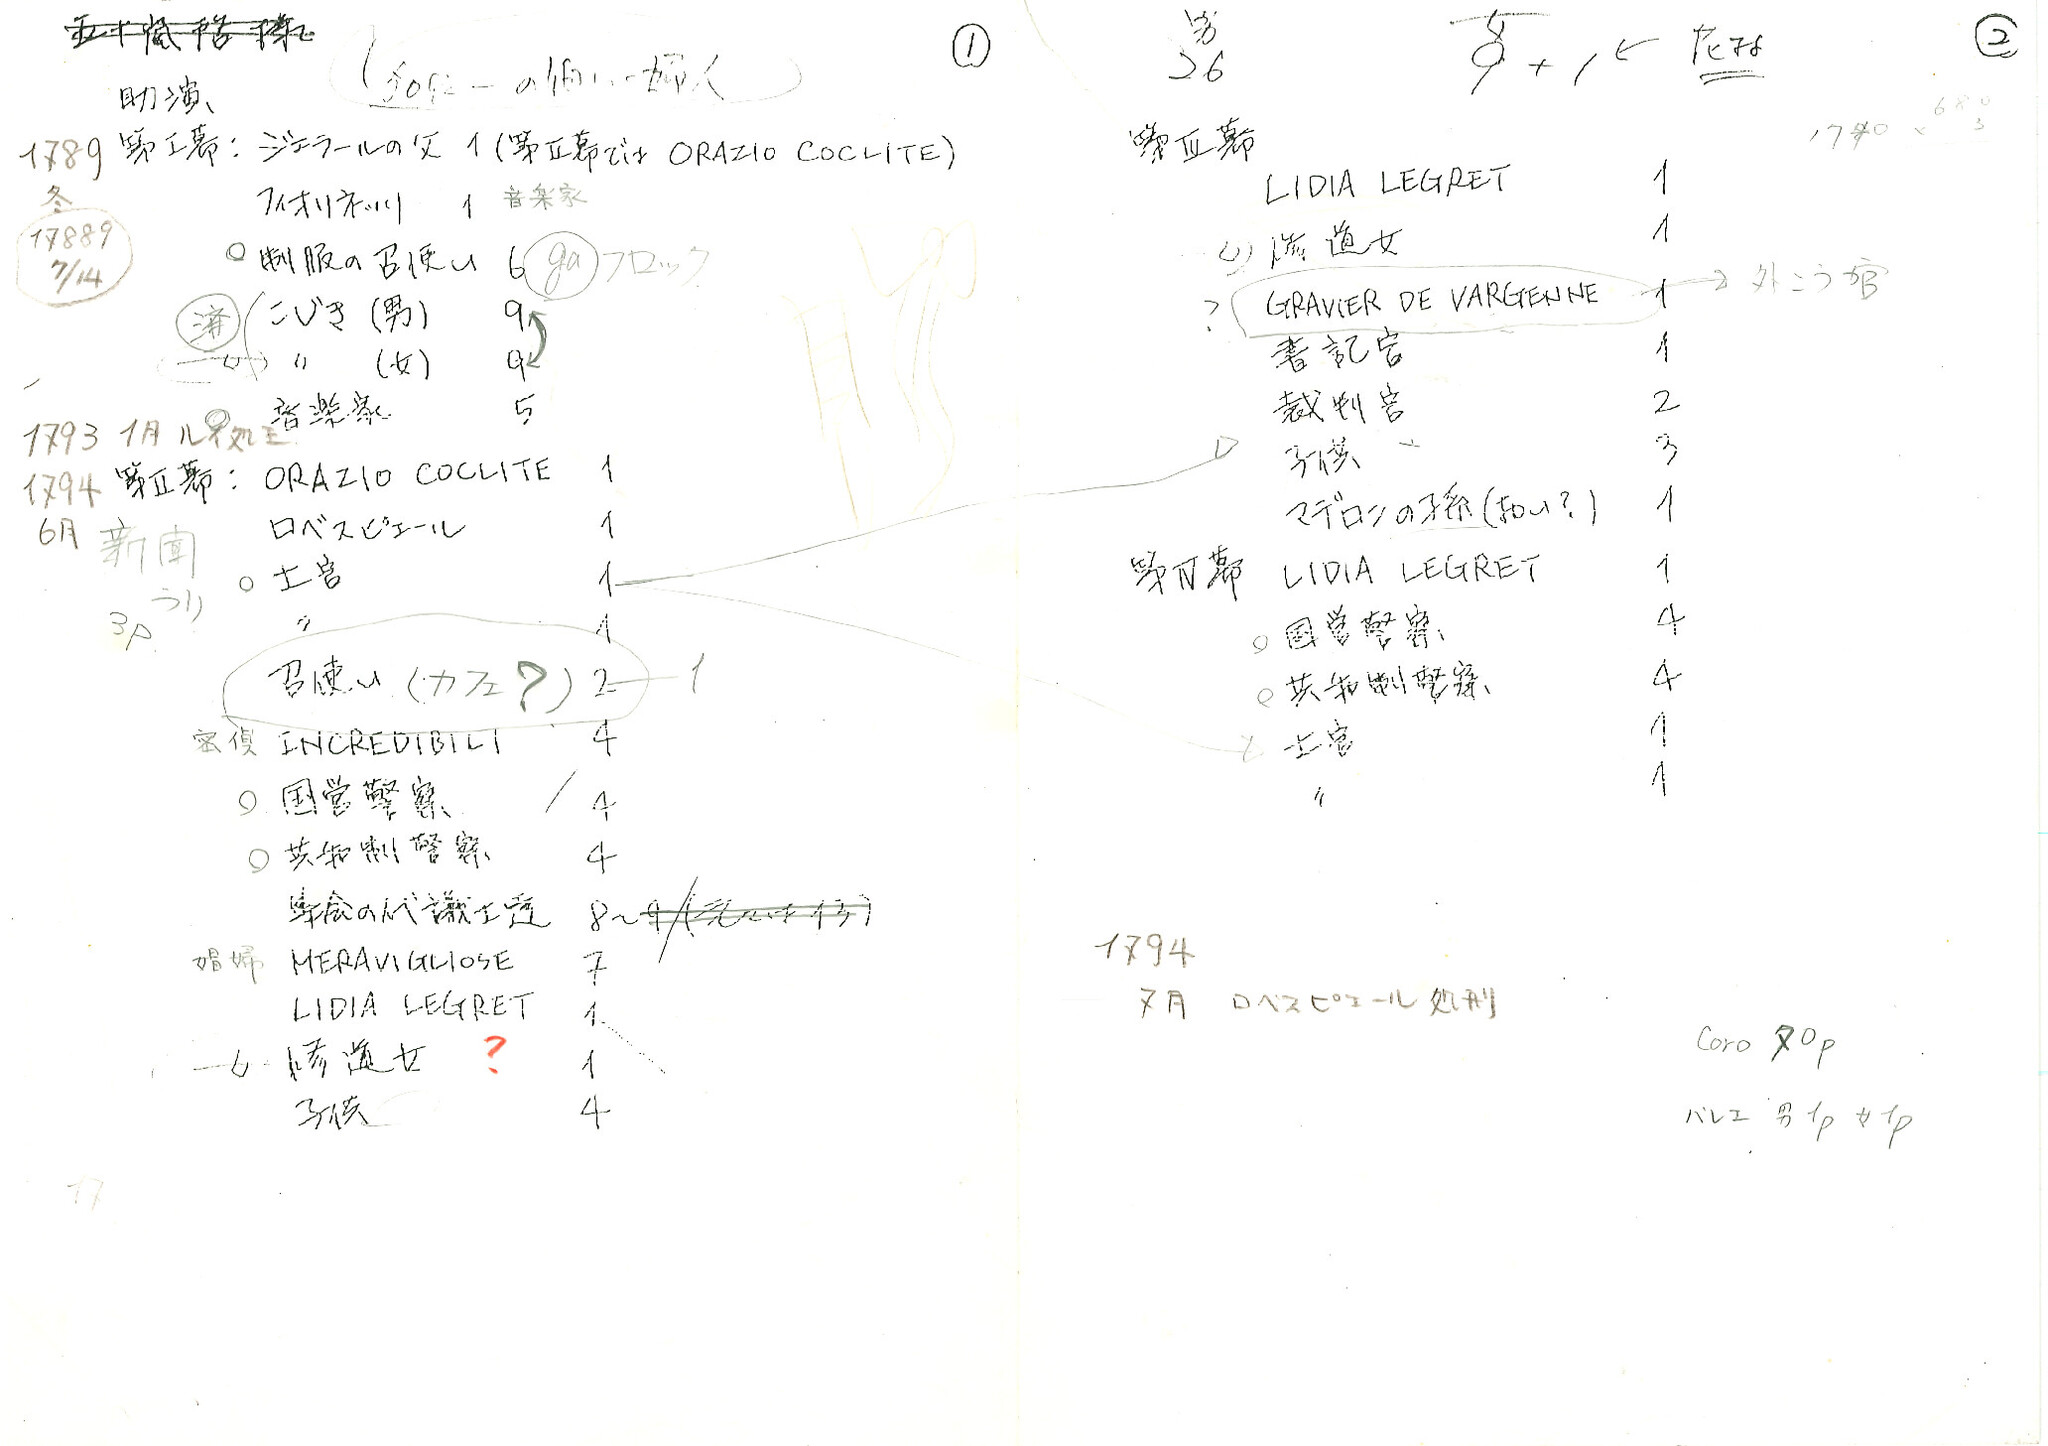 ①
助演
1789 第Ⅰ幕: ジェラールの父 1 (第Ⅱ幕では ORAZIO COCLITE)
冬
フィオリネッリ 1 音楽家
17889
7/14
制服の召使い 6 ga フロック
済 こじき (男) 9
〃 (女) 9
音楽家 5
1793 1月
1794 第Ⅱ幕: ORAZIO COCLITE 1
6月 新聞 うり 3p
ロベスピエール 1
士官 1
〃 1
召使い (カフェ?) 2 1
密偵 INCREDIBILI 4
国営警察 4
共和制警察 4
国会の代議士達 8~
娼婦 MERAVIGLIOSE 7
LIDIA LEGRET 1
修道女 ? 1
子供 4
17
②
男 26
女 9 + 1 ←
第Ⅲ幕
LIDIA LEGRET 1
修道女 1
? GRAVIER DE VARGENNE 1 → 外こう官
書記官 1
裁判官 2
子供 3
マデロンの孫 (おい?) 1
第Ⅳ幕 LIDIA LEGRET 1
国営警察 4
共和制警察 4
士官 1
〃 1
1794
7月 ロベスピエール処刑
Coro 70p
バレエ 男1p 女1p